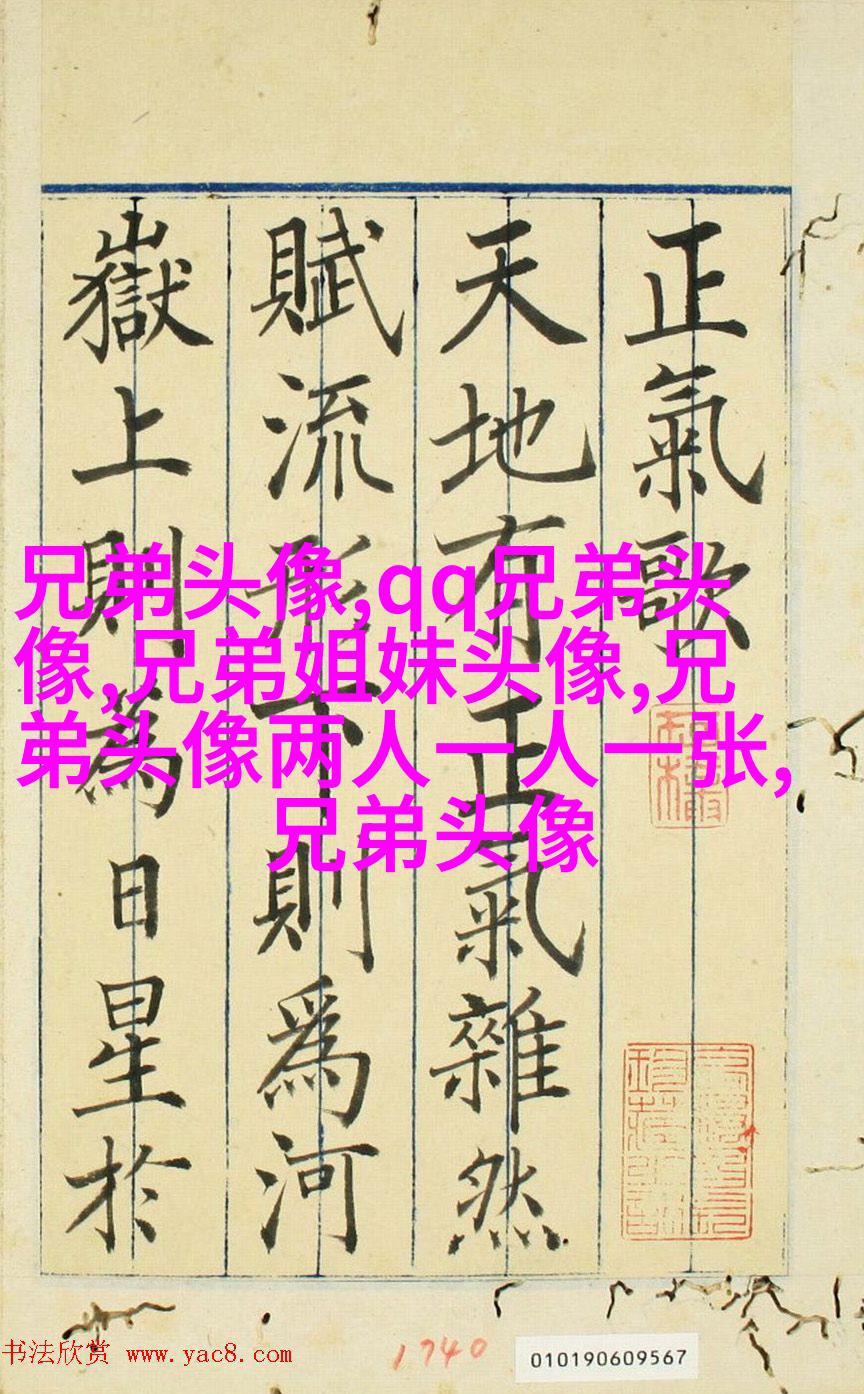 正氣歌
天地有正氣雜然
賦流形下則為河
嶽上則為日星於
兄弟头像,qq兄弟头
像,兄弟姐妹头像,兄
弟头像两人一人一张,
兄弟头像
书法欣赏 www.yac8.com
1740
010190609567